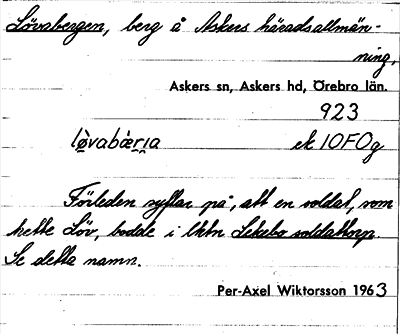 Lövabergen, berg å Askers häradsallmän-
ning,
Askers sn, Askers hd, Örebro län.
923
lø̀vabæ̀r̯ɪa ek 10F0g
Förleden syftar på, att en soldat, som
hette Löv, bodde i lktn Lekebo soldattorp.
Se detta namn.
Per-Axel Wiktorsson 1963